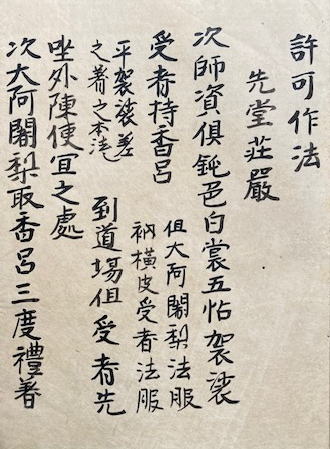 許可作法
先堂莊嚴
次師資俱鈍色白裳五帖袈裟
受者持香呂
但大阿闍梨法服
衲橫皮受者法服
平袈裟差
之著之本
到道場但受者先
坐外陳使宜之處
次大阿闍梨取香呂三度禮著